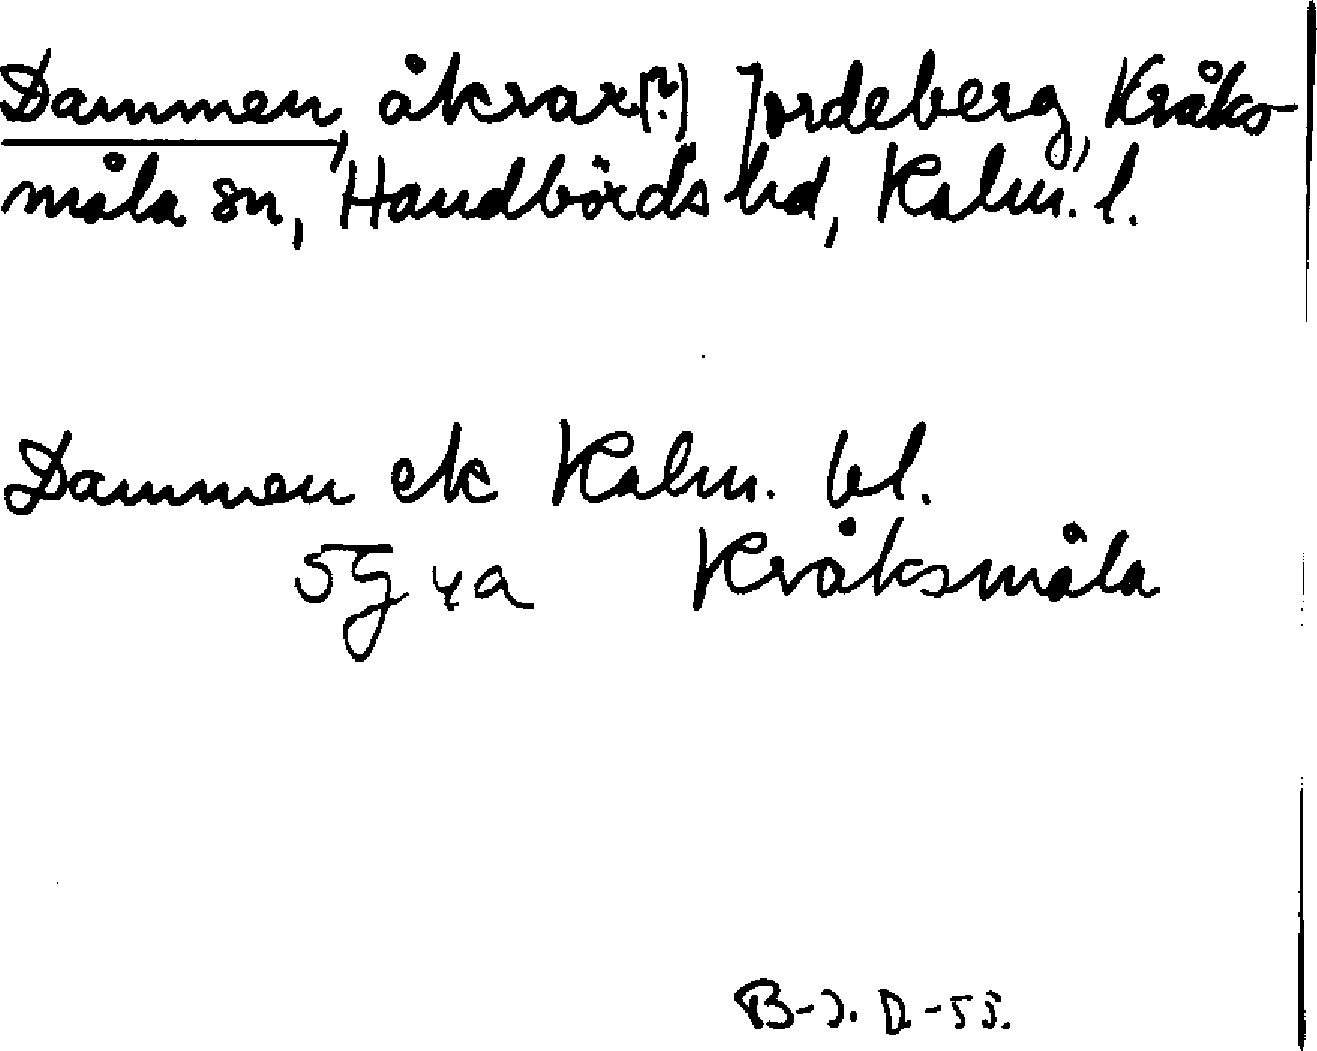 Dammen, åkrar(?) Jordeberg, Kråks-
måla sn, Handbörds hd, Kalm. l.
Dammen ek Kalm. bl.
5G 4a Kråksmåla
B-J. D. -53.